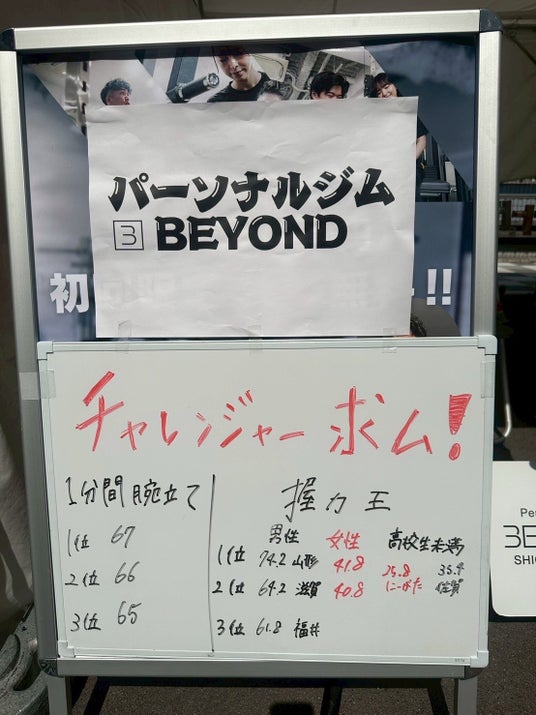 パーソナルジム
3 BEYOND
初 !!
チャレンジャー求ム!
1分間腕立て
1位 67
2位 66
3位 65
握力王
男性 女性 高校生未満
1位 74.2 山形 41.8 25.8 35.9
2位 64.2 滋賀 40.8 にーがた 佐賀
3位 61.8 福井